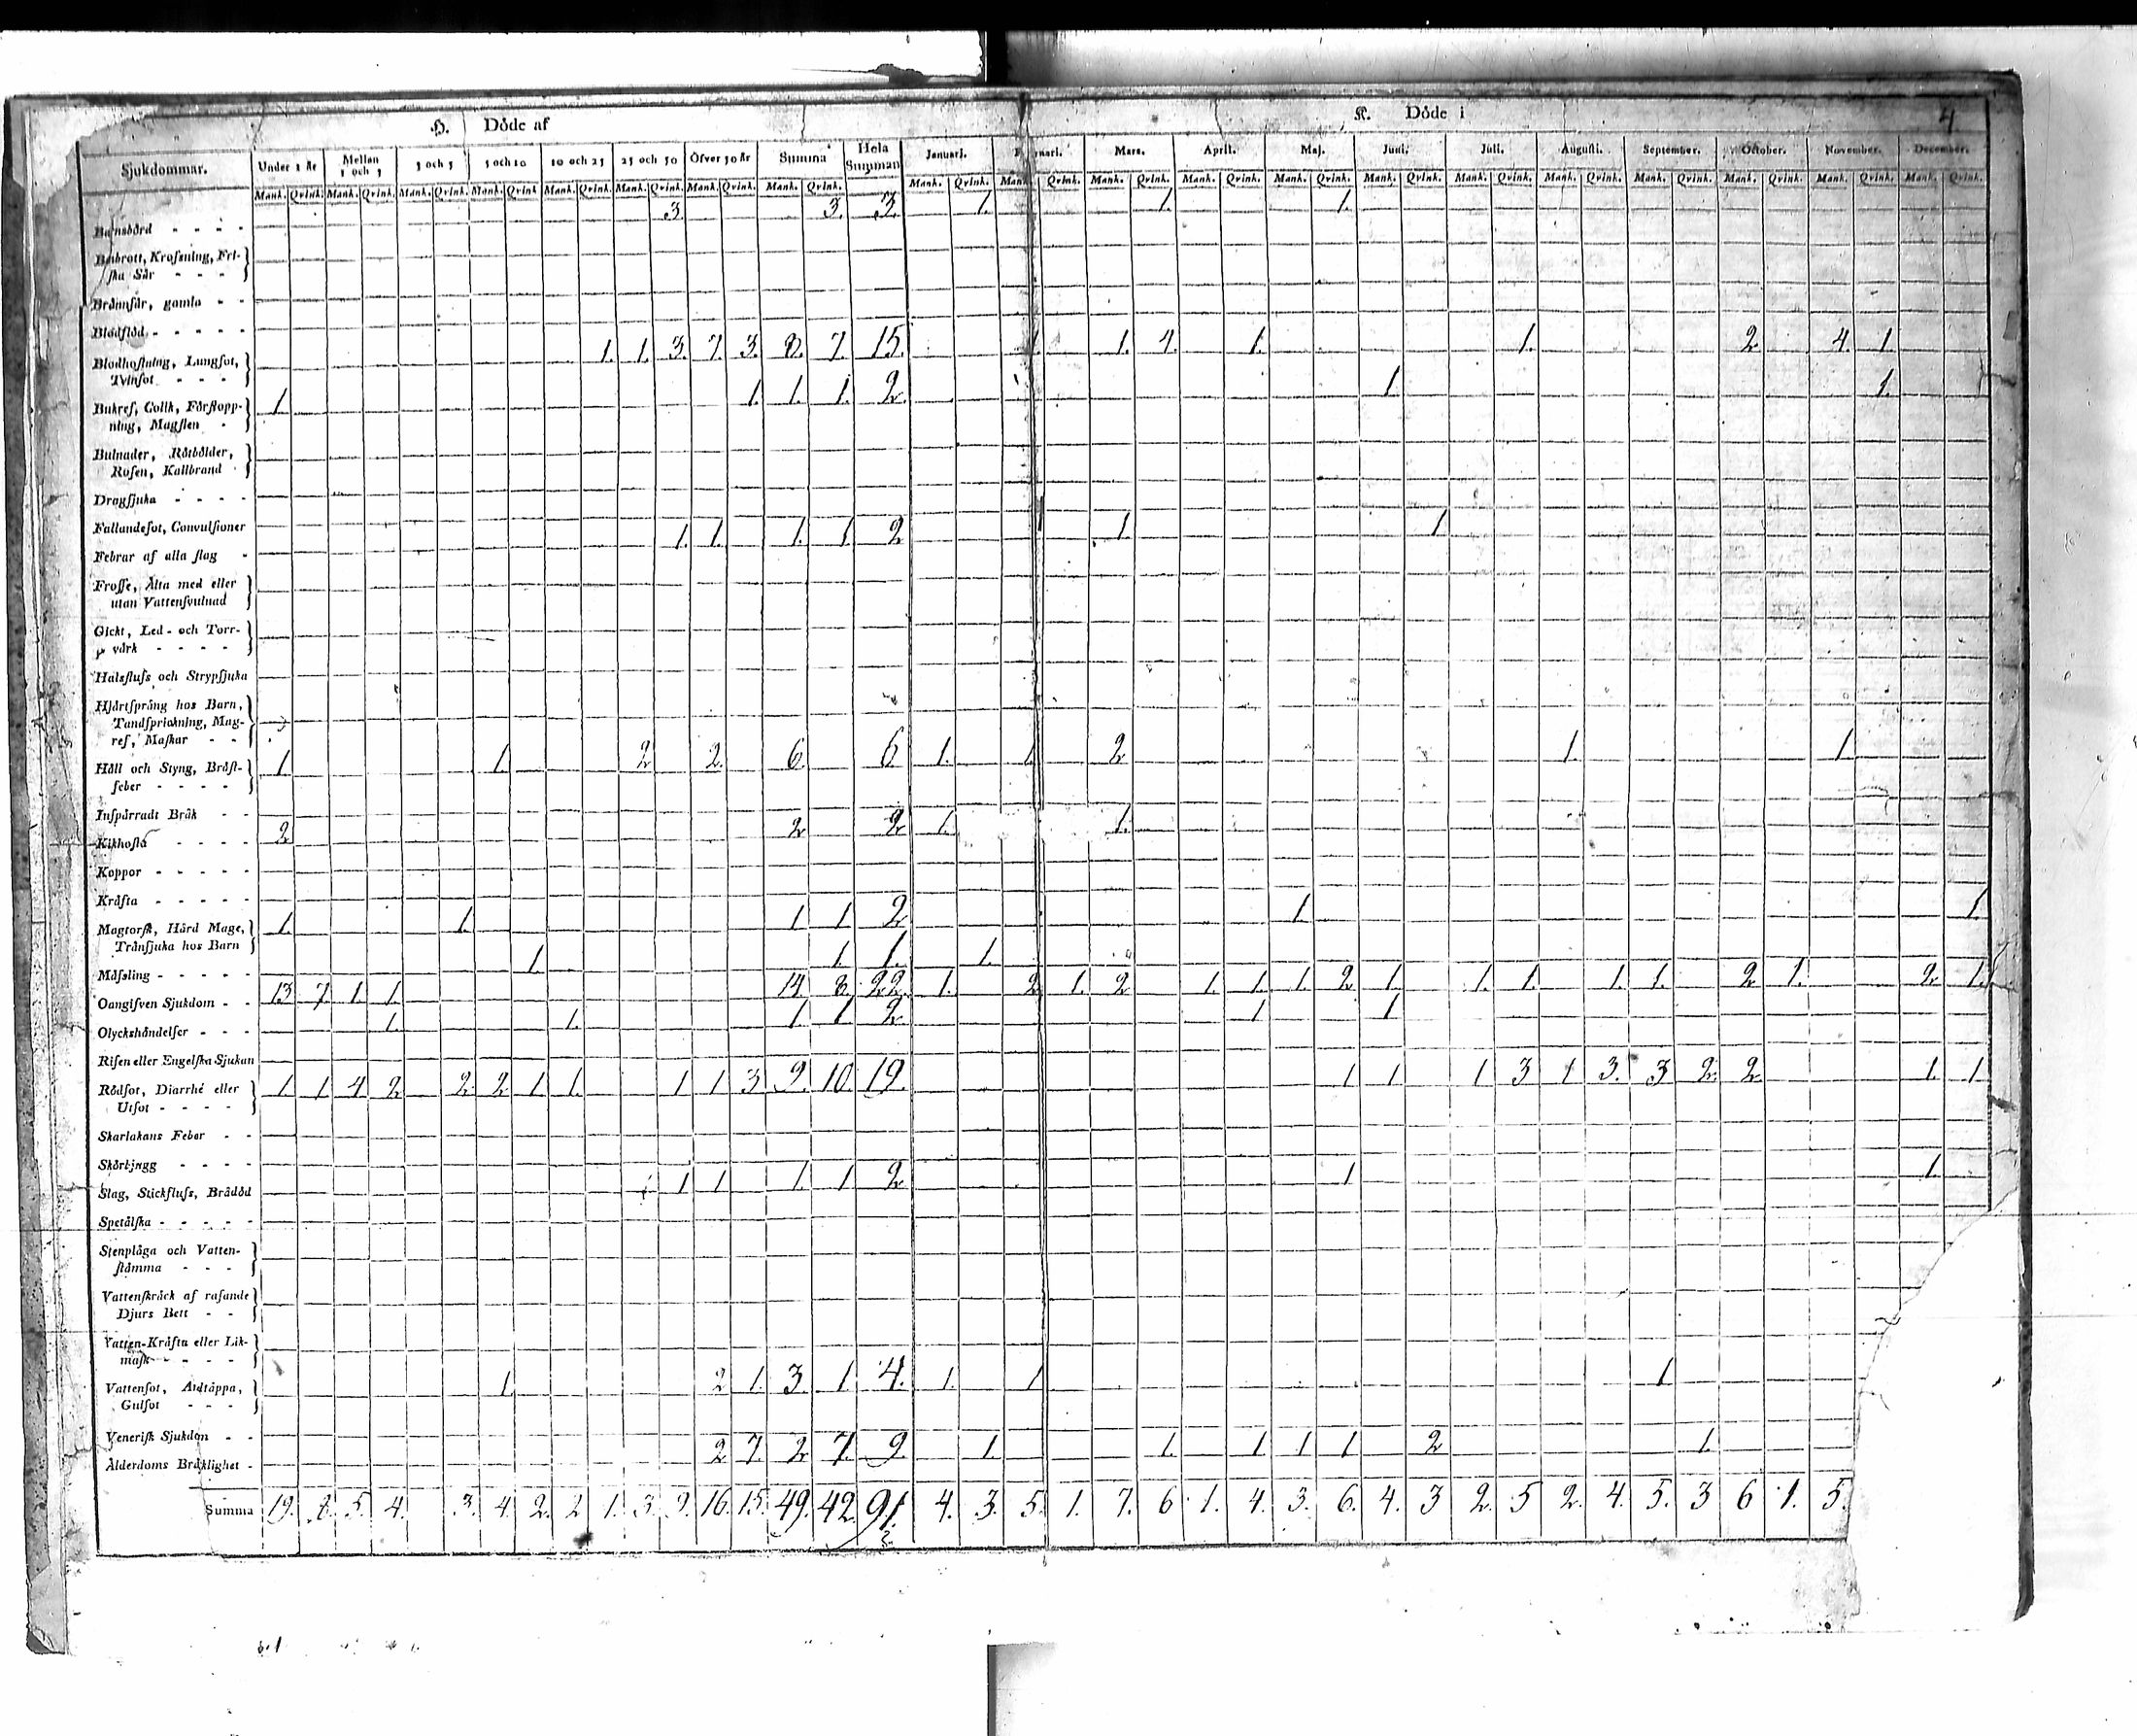 H. Döde af
K. Döde i
4
Sjukdommar. Under 1 År Mellan 1 och 3 3 och 5 5 och 10 10 och 25 25 och 50 Öfver 50 År Summa Hela Summan Januari. Mars. April. Maj. Juni. Juli. Augusti. September. October. November. December.
Mank. Qvink. Mank. Qvink. Mank. Qvink. Mank. Qvink Mank. Qvink. Mank. Qvink. Mank. Qvink. Mank. Qvink. Mank. Qvink. Mank. Qvink. Mank. Qvink. Mank. Qvink. Mank. Qvink. Mank. Qvink. Mank. Qvink. Mank. Qvink. Mank. Qvink. Mank. Qvink. Mank. Qvink. Mank. Qvink.
Barnsbörd - - - - 3. 3. 3. 1. 1. 1.
Benbrott, Krossning, Fri-
ska Sår - - -
Brännsår, gamla - -
Blodflöd - - - - -
Blodhostning, Lungsot, 1. 1. 3. 7. 3. 8. 7. 15. 1. 1. 4. 1. 1. 2. 4. 1.
Tvinsot - - -
Bukref, Colik, Förstopp- 1. 1. 1. 1. 2. 1. 1.
ning, Magslen -
Bulnader, Rötbölder,
Rosen, Kallbrand
Dragsjuka - - - -
Fallandesot, Convulsioner
Febrar af alla slag - 1. 1. 1. 1 2 1. 1
Frosse, Älta med eller
utan Vattensvulnad
Gickt, Led- och Torr-
värk - - - -
Halsfluss och Strypsjuka
Hjärtsprång hos Barn,
Tandsprickning, Mag-
ref, Maskar - -
Håll och Styng, Bröst- 1. 1. 2 2. 6 6 1. 1. 2 1. 1.
feber - - - -
Inspärradt Bråk - -
Kikhosta - - - - 2 2 2 1. 1.
Koppor - - - - -
Kräfta - - - - -
Magtorsk, Hård Mage, 1. 1. 1 1 2 1. 1.
Tränsjuka hos Barn
Mässling - - - - - 1. 1. 1. 1.
Oangifven Sjukdom - - 13 7. 1 1. 14 8. 22. 1. 2 1. 2 1. 1. 1. 2 1. 1. 1. 1. 1. 2 1. 2 1.
Olyckshändelser - - - 1. 1. 1 1 2 1 1
Risen eller Engelska Sjukan
Rödsot, Diarrhé eller 1. 1 4 2 2 2 1 1. 1 1 3 9. 10. 19. 1 1 1 3 1 3. 3 2. 2 1. 1
Utsot - - - -
Skarlakans Feber - -
Skörbjugg - - - -
Slag, Stickfluss, Brådöd 1 1 1. 1 2 1 1.
Spetälska - - - - -
Stenplåga och Vatten-
stämma - - -
Vattenskräck af rasande
Djurs Bett - -
Vatten-Kräfta eller Lik-
mask - - - -
Vattensot, Andtäppa, 1 2 1. 3. 1. 4. 1. 1 1
Gulsot - - -
Venerisk Sjukdom - -
Ålderdoms Bräklighet - 2 7. 2 7. 9. 1. 1. 1 1 1 2 1
Summa 19. 8. 5. 4. 3. 4. 2. 2 1. 3. 9. 16. 15. 49. 42. 91. 4. 3. 5. 1. 7. 6 1. 4. 3. 6. 4. 3 2. 5 2. 4. 5. 3 6 1. 5.